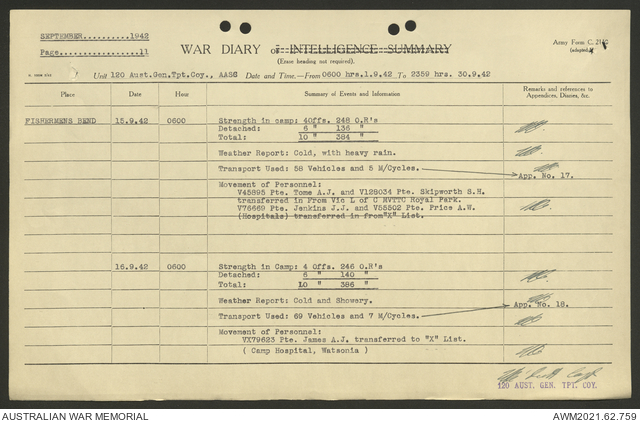 SEPTEMBER..........1942
Page................11
WAR DIARY or INTELLIGENCE SUMMARY
(Erase heading not required).
Army Form C. 2118
(adapted)
Unit 120 Aust.Gen.Tpt.Coy., AASC Date and Time.—From 0600 hrs.1.9.42 To 2359 hrs. 30.9.42
Place Date Hour Summary of Events and Information Remarks and references to Appendices, Diaries, &c.
FISHERMENS BEND 15.9.42 0600 Strength in camp: 4Offs. 248 O.R's
Detached: 6 " 136 "
Total: 10 " 384 "
Weather Report: Cold, with heavy rain.
Transport Used: 58 Vehicles and 5 M/Cycles.
App. No. 17.
Movement of Personnel:
V45895 Pte. Tome A.J. and V128034 Pte. Skipworth S.H.
transferred in From Vic L of C RVTTC Royal Park.
V76669 Pte. Jenkins J.J. and V55502 Pte. Price A.W.
(Hospitals) transferred in from"X" List.
16.9.42 0600 Strength in Camp: 4 Offs. 246 O.R's
Detached: 6 " 140 "
Total: 10 " 386 "
Weather Report: Cold and Showery.
App. No. 18.
Transport Used: 69 Vehicles and 7 M/Cycles.
Movement of Personnel:
VX79623 Pte. James A.J. transferred to "X" List.
( Camp Hospital, Watsonia )
120 AUST. GEN. TPT. COY.
AUSTRALIAN WAR MEMORIAL AWM2021.62.759